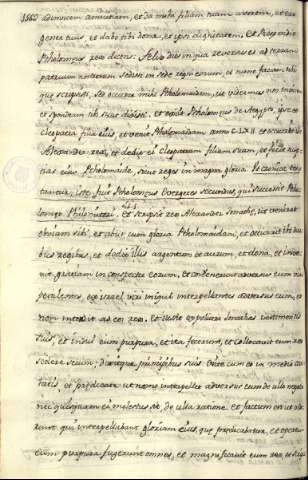 amicitiam amicorum, et da mihi filiam tuam uxorem, et ero
gener tuus, et dabo tibi dona, et ipsi dignitatem, et respondit
Ptholomeus rex dicens: Felix dies in qua reversus es ad terram
patrum tuorum et sedisti in sede regni eorum, et nunc faciam tibi
que scripsisti, sed occurre mihi Ptholomaidam, ut videamus nos invicem
et spondeam tibi sicut dixisti. et exiit Ptholomeus de Aegypto, ipse et
Cleopatra filia eius, et venit Ptholomaidam anno CLXII et occurrit ei
Alexander rex, et dedit ei Cleopatram filiam suam, et fecit nup
tias eius Ptholomaide, sicut reges in magna gloria.
iste fuit Ptholomeus Evergetes secundus, qui successit Ptho
lomeo Philometri. et scripsit rex Alexander Ionathe, ut veniret
obviam sibi, et abiit cum gloria Ptholomaidam, et occurrit ibi duo
bus regibus, et dedit illis argentum et aurum, et dona, et inve
nit gratiam in conspectu eorum, et convenerunt adversus eum viri
pestilentes, ex israel viri iniqui interpellantes adversus eum, et
non intendit ad eos rex. et iussit expoliari Ionathan vestimentis
suis, et indui eum purpura, et ita fecerunt, et collocavit eum rex
sedere secum; dixitque principibus suis Exite cum eo in medio civi
tatis, et predicate ut nemo interpellet adversus eum de ullo negotio
nec quisquam ei molestus sit de ulla ratione. et factum est ut vide
runt qui interpellabant gloriam eius, que predicabatur, et opertum
eum purpura fugerunt omnes, et magnificavit eum rex, et scrip